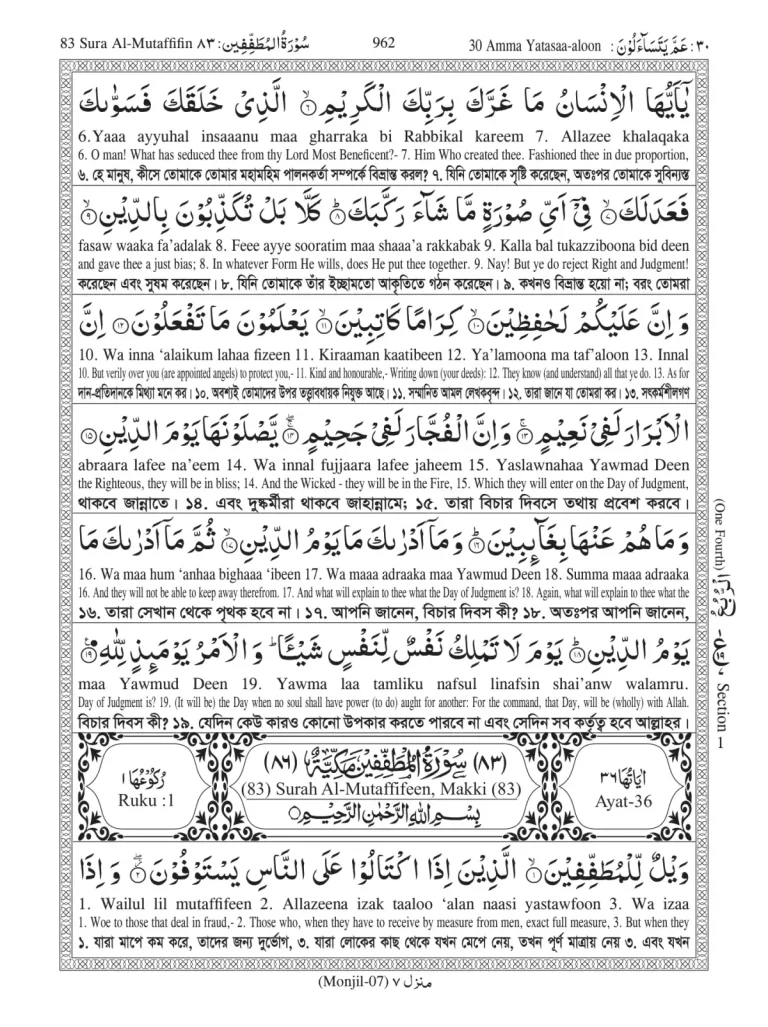 83 Sura Al-Mutaffifin ٨٣ :سُوْرَةُ الْمُطَفِّفِيْن 962 30 Amma Yatasaa-aloon : عَمَّ يَتَسَآءَلُوْنَ :٣٠
يٰۤاَيُّهَا الْاِنْسَانُ مَا غَرَّكَ بِرَبِّكَ الْكَرِيْمِ ۙ﴿٦﴾ الَّذِيْ خَلَقَكَ فَسَوّٰىكَ
6.Yaaa ayyuhal insaaanu maa gharraka bi Rabbikal kareem 7. Allazee khalaqaka
6. O man! What has seduced thee from thy Lord Most Beneficent?- 7. Him Who created thee. Fashioned thee in due proportion,
৬. হে মানুষ, কীসে তোমাকে তোমার মহামহিম পালনকর্তা সম্পর্কে বিভ্রান্ত করল? ৭. যিনি তোমাকে সৃষ্টি করেছেন, অতঃপর তোমাকে সুবিন্যস্ত
فَعَدَلَكَ ۙ﴿٧﴾ فِيْۤ اَيِّ صُوْرَةٍ مَّا شَآءَ رَكَّبَكَ ؕ﴿٨﴾ كَلَّا بَلْ تُكَذِّبُوْنَ بِالدِّيْنِ ۙ﴿٩﴾
fasaw waaka fa’adalak 8. Feee ayye sooratim maa shaaa’a rakkabak 9. Kalla bal tukazziboona bid deen
and gave thee a just bias; 8. In whatever Form He wills, does He put thee together. 9. Nay! But ye do reject Right and Judgment!
করেছেন এবং সুষম করেছেন। ৮. যিনি তোমাকে তাঁর ইচ্ছামতো আকৃতিতে গঠন করেছেন। ৯. কখনও বিভ্রান্ত হয়ো না; বরং তোমরা
وَ اِنَّ عَلَيْكُمْ لَحٰفِظِيْنَ ۙ﴿١٠﴾ كِرَامًا كَاتِبِيْنَ ۙ﴿١١﴾ يَعْلَمُوْنَ مَا تَفْعَلُوْنَ ﴿١٢﴾ اِنَّ
10. Wa inna ‘alaikum lahaa fizeen 11. Kiraaman kaatibeen 12. Ya’lamoona ma taf’aloon 13. Innal
10. But verily over you (are appointed angels) to protect you,- 11. Kind and honourable,- Writing down (your deeds): 12. They know (and understand) all that ye do. 13. As for
দান-প্রতিদানকে মিথ্যা মনে কর। ১০. অবশ্যই তোমাদের উপর তত্ত্বাবধায়ক নিযুক্ত আছে। ১১. সম্মানিত আমল লেখকবৃন্দ। ১২. তারা জানে যা তোমরা কর। ১৩. সৎকর্মশীলগণ
الْاَبْرَارَ لَفِيْ نَعِيْمٍ ۚ﴿١٣﴾ وَاِنَّ الْفُجَّارَ لَفِيْ جَحِيْمٍ ۚۖ﴿١٤﴾ يَّصْلَوْنَهَا يَوْمَ الدِّيْنِ ﴿١٥﴾
abraara lafee na’eem 14. Wa innal fujjaara lafee jaheem 15. Yaslawnahaa Yawmad Deen
the Righteous, they will be in bliss; 14. And the Wicked - they will be in the Fire, 15. Which they will enter on the Day of Judgment,
থাকবে জান্নাতে। ১৪. এবং দুষ্কর্মীরা থাকবে জাহান্নামে; ১৫. তারা বিচার দিবসে তথায় প্রবেশ করবে।
وَمَا هُمْ عَنْهَا بِغَآىِٕبِيْنَ ؕ﴿١٦﴾ وَمَاۤ اَدْرٰىكَ مَا يَوْمُ الدِّيْنِ ۙ﴿١٧﴾ ثُمَّ مَاۤ اَدْرٰىكَ مَا
16. Wa maa hum ‘anhaa bighaaa ‘ibeen 17. Wa maaa adraaka maa Yawmud Deen 18. Summa maaa adraaka
16. And they will not be able to keep away therefrom. 17. And what will explain to thee what the Day of Judgment is? 18. Again, what will explain to thee what the
১৬. তারা সেখান থেকে পৃথক হবে না। ১৭. আপনি জানেন, বিচার দিবস কী? ১৮. অতঃপর আপনি জানেন,
(One Fourth)
يَوْمُ الدِّيْنِ ؕ﴿١٨﴾ يَوْمَ لَا تَمْلِكُ نَفْسٌ لِّنَفْسٍ شَيْـًٔا ؕ وَ الْاَمْرُ يَوْمَىِٕذٍ لِّلّٰهِ ﴿١٩﴾
maa Yawmud Deen 19. Yawma laa tamliku nafsul linafsin shai’anw walamru.
Day of Judgment is? 19. (It will be) the Day when no soul shall have power (to do) aught for another: For the command, that Day, will be (wholly) with Allah.
বিচার দিবস কী? ১৯. যেদিন কেউ কারও কোনো উপকার করতে পারবে না এবং সেদিন সব কর্তৃত্ব হবে আল্লাহর।
Section 1
رُكُوْعُهَا ١
Ruku :1
(٨٣) سُوْرَةُ الْمُطَفِّفِيْنَ مَكِّيَّةٌ (٨٦)
(83) Surah Al-Mutaffifeen, Makki (83)
بِسْمِ اللّٰهِ الرَّحْمٰنِ الرَّحِيْمِ
اٰيَاتُهَا ٣٦
Ayat-36
وَيْلٌ لِّلْمُطَفِّفِيْنَ ۙ﴿١﴾ الَّذِيْنَ اِذَا اكْتَالُوْا عَلَى النَّاسِ يَسْتَوْفُوْنَ ۖ﴿٢﴾ وَ اِذَا
1. Wailul lil mutaffifeen 2. Allazeena izak taaloo ‘alan naasi yastawfoon 3. Wa izaa
1. Woe to those that deal in fraud,- 2. Those who, when they have to receive by measure from men, exact full measure, 3. But when they
১. যারা মাপে কম করে, তাদের জন্য দুর্ভোগ, ৩. যারা লোকের কাছ থেকে যখন মেপে নেয়, তখন পূর্ণ মাত্রায় নেয় ৩. এবং যখন
(Monjil-07) ٧ منزل